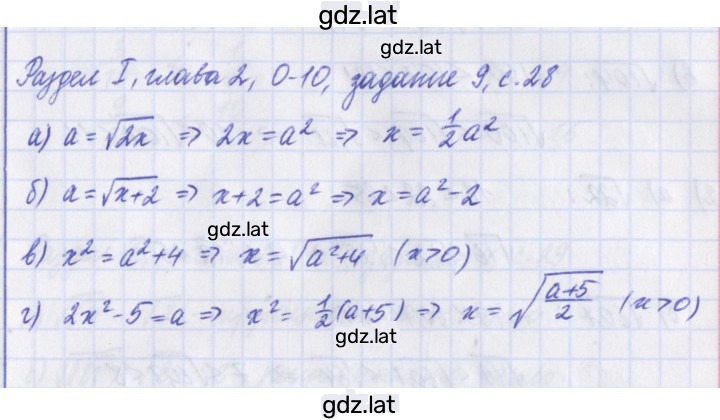 gdz.lat
gdz.lat
Раздел I, глава 2, О-10, задание 9, с. 28
а) a = √2x => 2x = a² => x = 1/2 a²
б) a = √x+2 => x+2 = a² => x = a²-2
gdz.lat
в) x² = a²+4 => x = √a²+4 (x>0)
г) 2x²-5 = a => x² = 1/2 (a+5) => x = √a+5/2 (x>0)
gdz.lat
gdz.lat